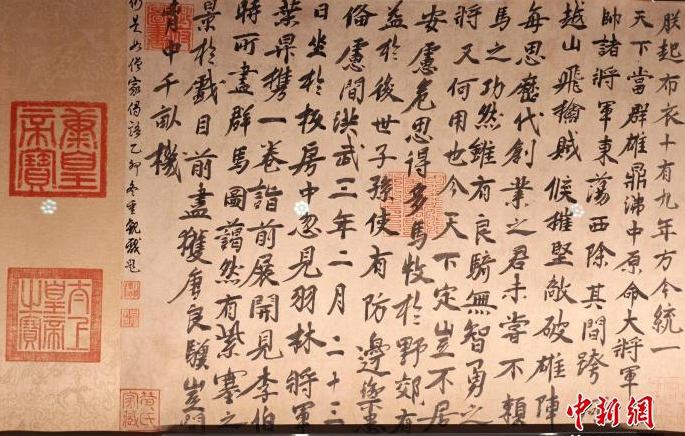 朕起布衣十有九年方今統一
天下當群雄鼎沸中原命大將軍
帥諸將軍東蕩西除其間跨
越山飛擒賊候摧堅敵破雄陣
每思歷代創業之君未嘗不賴
馬之功然雖有良騎無智勇之
將又何用也今天下定豈不居
安慮危思得多馬牧於野郊有
益於後世子孫使有防邊禦患
俻慮間洪武三年二月二十三
日坐於板房中忽見羽林將軍
葉昇携一卷詣前展開見李伯
時所畫群馬圖藹然有紫塞之
景於戲目前盡獲唐良驥豈問
胷中千畝機
乙卯冬重觀戲題
皇帝寶
太上皇帝之寶
中新網